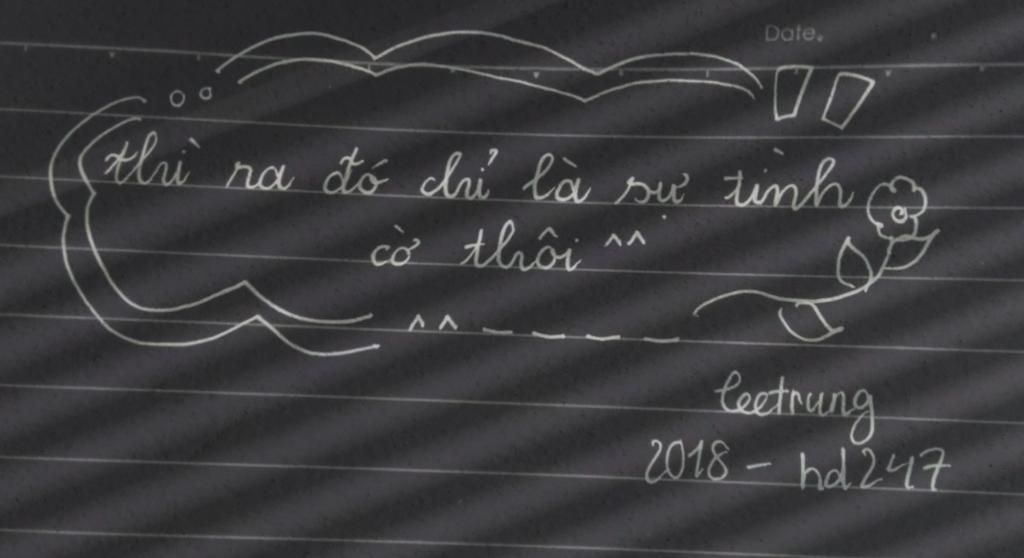 Date.
thì ra đó chỉ là sự tình
cờ thôi ^^
^^ _ _ _ _
leetrung
2018 - hd247